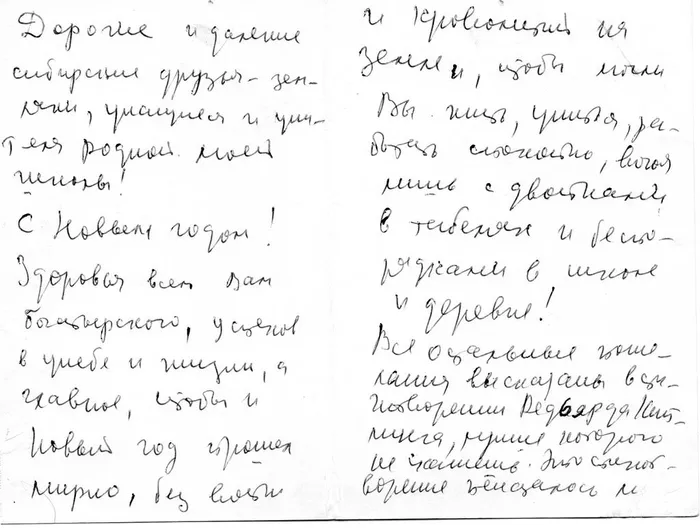 Дорогие и далекие
сибирские друзья-зем-
ляки, учащиеся и учи-
теля родной моей
школы!
С Новым годом!
Здоровья всем Вам
богатырского, успехов
в учебе и жизни, а
главное, чтобы и
Новый год прошел
мирно, без войн
и кровопролитий на
земле, чтобы могли
Вы жить, учиться, ра-
ботать спокойно, воюя
лишь с двойками
в табелях и беспо-
рядками в школе
и деревне!
Все остальные поже-
лания высказаны в сти-
хотворении Редьярда Кип-
линга, лучше которого
не скажешь. Это стихот-
ворение